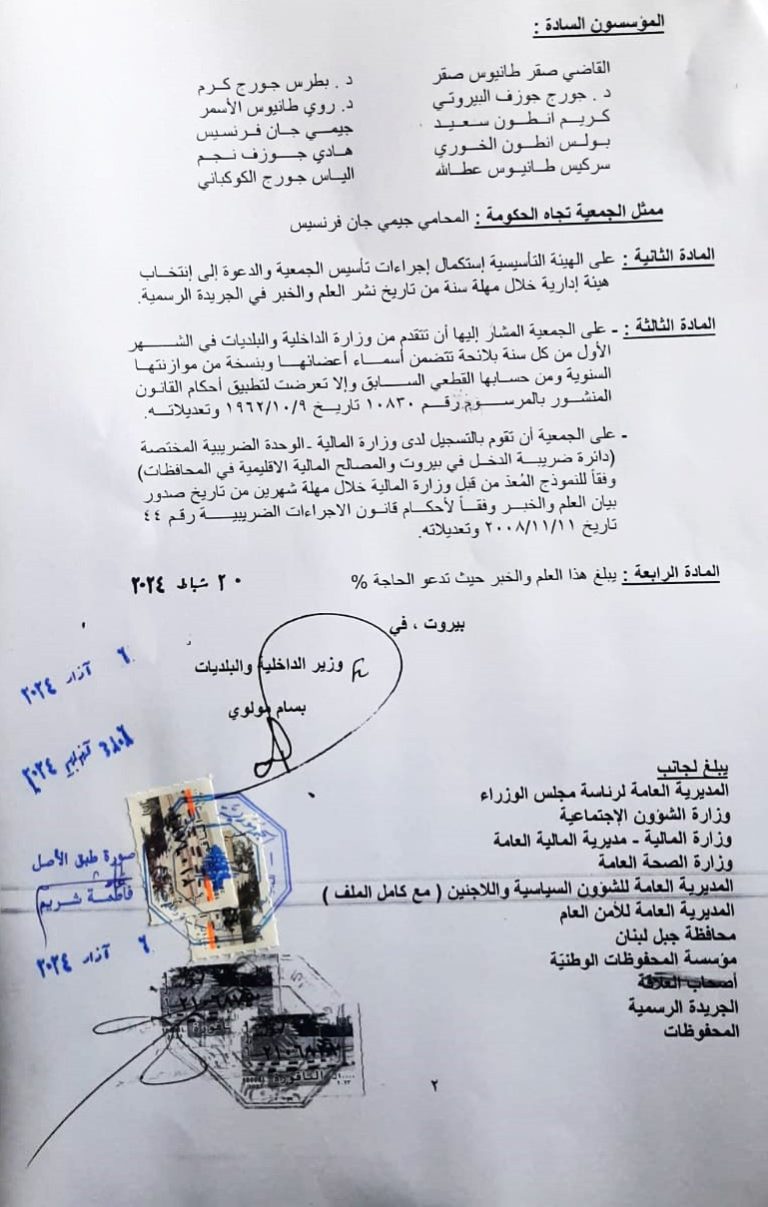 المؤسسون السادة :
القاضي صقر طانيوس صقر
د . جورج جوزف البيروتي
كريم انطون سعيد
بولس انطون الخوري
سركيس طانيوس عطالله
د . بطرس جورج كرم
د. روي طانيوس الأسمر
جيمي جان فرنسيس
هادي جوزف نجم
الياس جورج الكوكباني
ممثل الجمعية تجاه الحكومة : المحامي جيمي جان فرنسيس
المادة الثانية : على الهيئة التأسيسية إستكمال إجراءات تأسيس الجمعية والدعوة إلى إنتخاب
هيئة إدارية خلال مهلة سنة من تاريخ نشر العلم والخبر في الجريدة الرسمية.
المادة الثالثة : - على الجمعية المشار إليها أن تتقدم من وزارة الداخلية والبلديات في الشهر
الأول من كل سنة بلائحة تتضمن أسماء أعضائها وبنسخة من موازنتها
السنوية ومن حسابها القطعي السابق وإلا تعرضت لتطبيق أحكام القانون
المنشور بالمرسوم رقم ١٠٨٣٠ تاريخ ١٩٦٢/١٠/٩ وتعديلاته.
- على الجمعية أن تقوم بالتسجيل لدى وزارة المالية - الوحدة الضريبية المختصة
(دائرة ضريبة الدخل في بيروت والمصالح المالية الاقليمية في المحافظات)
وفقاً للنموذج المُعد من قبل وزارة المالية خلال مهلة شهرين من تاريخ صدور
بيان العلم والخبر وفقاً لأحكام قانون الاجراءات الضريبية رقم ٤٤
تاريخ ٢٠٠٨/١١/١١ وتعديلاته.
المادة الرابعة : يبلغ هذا العلم والخبر حيث تدعو الحاجة %
٢٠ شباط ٢٠٢٤
بيروت ، في
وزير الداخلية والبلديات
بسام مولوي
٦ آذار ٢٠٢٤
صورة طبق الأصل
فاطمة شريم
٦ آذار ٢٠٢٤
يبلغ لجانب
المديرية العامة لرئاسة مجلس الوزراء
وزارة الشؤون الإجتماعية
وزارة المالية - مديرية المالية العامة
وزارة الصحة العامة
المديرية العامة للشؤون السياسية واللاجئين ( مع كامل الملف )
المديرية العامة للأمن العام
محافظة جبل لبنان
مؤسسة المحفوظات الوطنيّة
أصحاب العلاقة
الجريدة الرسمية
المحفوظات
٢